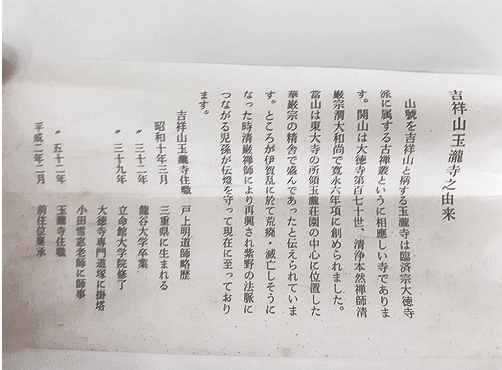 吉祥山玉瀧寺之由来
山號を吉祥山と稱する玉瀧寺は臨済宗大徳寺
派に属する古禅叢というに相應しい寺でありま
す。開山は大徳寺第百七十世、清浄本然禅師清
巌宗渭大和尚で寛永六年項に創められました。
当山は東大寺の所領玉瀧荘園の中心に位置した
華厳宗の精舎で盛んであったと伝えられていま
す。ところが伊賀乱に於て荒廃・滅亡しそうに
なった時清巌禅師により再興され紫野の法脈に
つながる児孫が伝燈を守って現在に至っており
ます。
吉祥山玉瀧寺住職 戸上明道師略歴
昭和十年三月 三重県に生まれる
〃 三十二年 龍谷大学卒業
〃 三十九年 立命館大学院修了
大徳寺専門道塚に掛塔
小田雪窓老師に師事
〃 五十二年 玉瀧寺住職
平成二年二月 前住位稟承